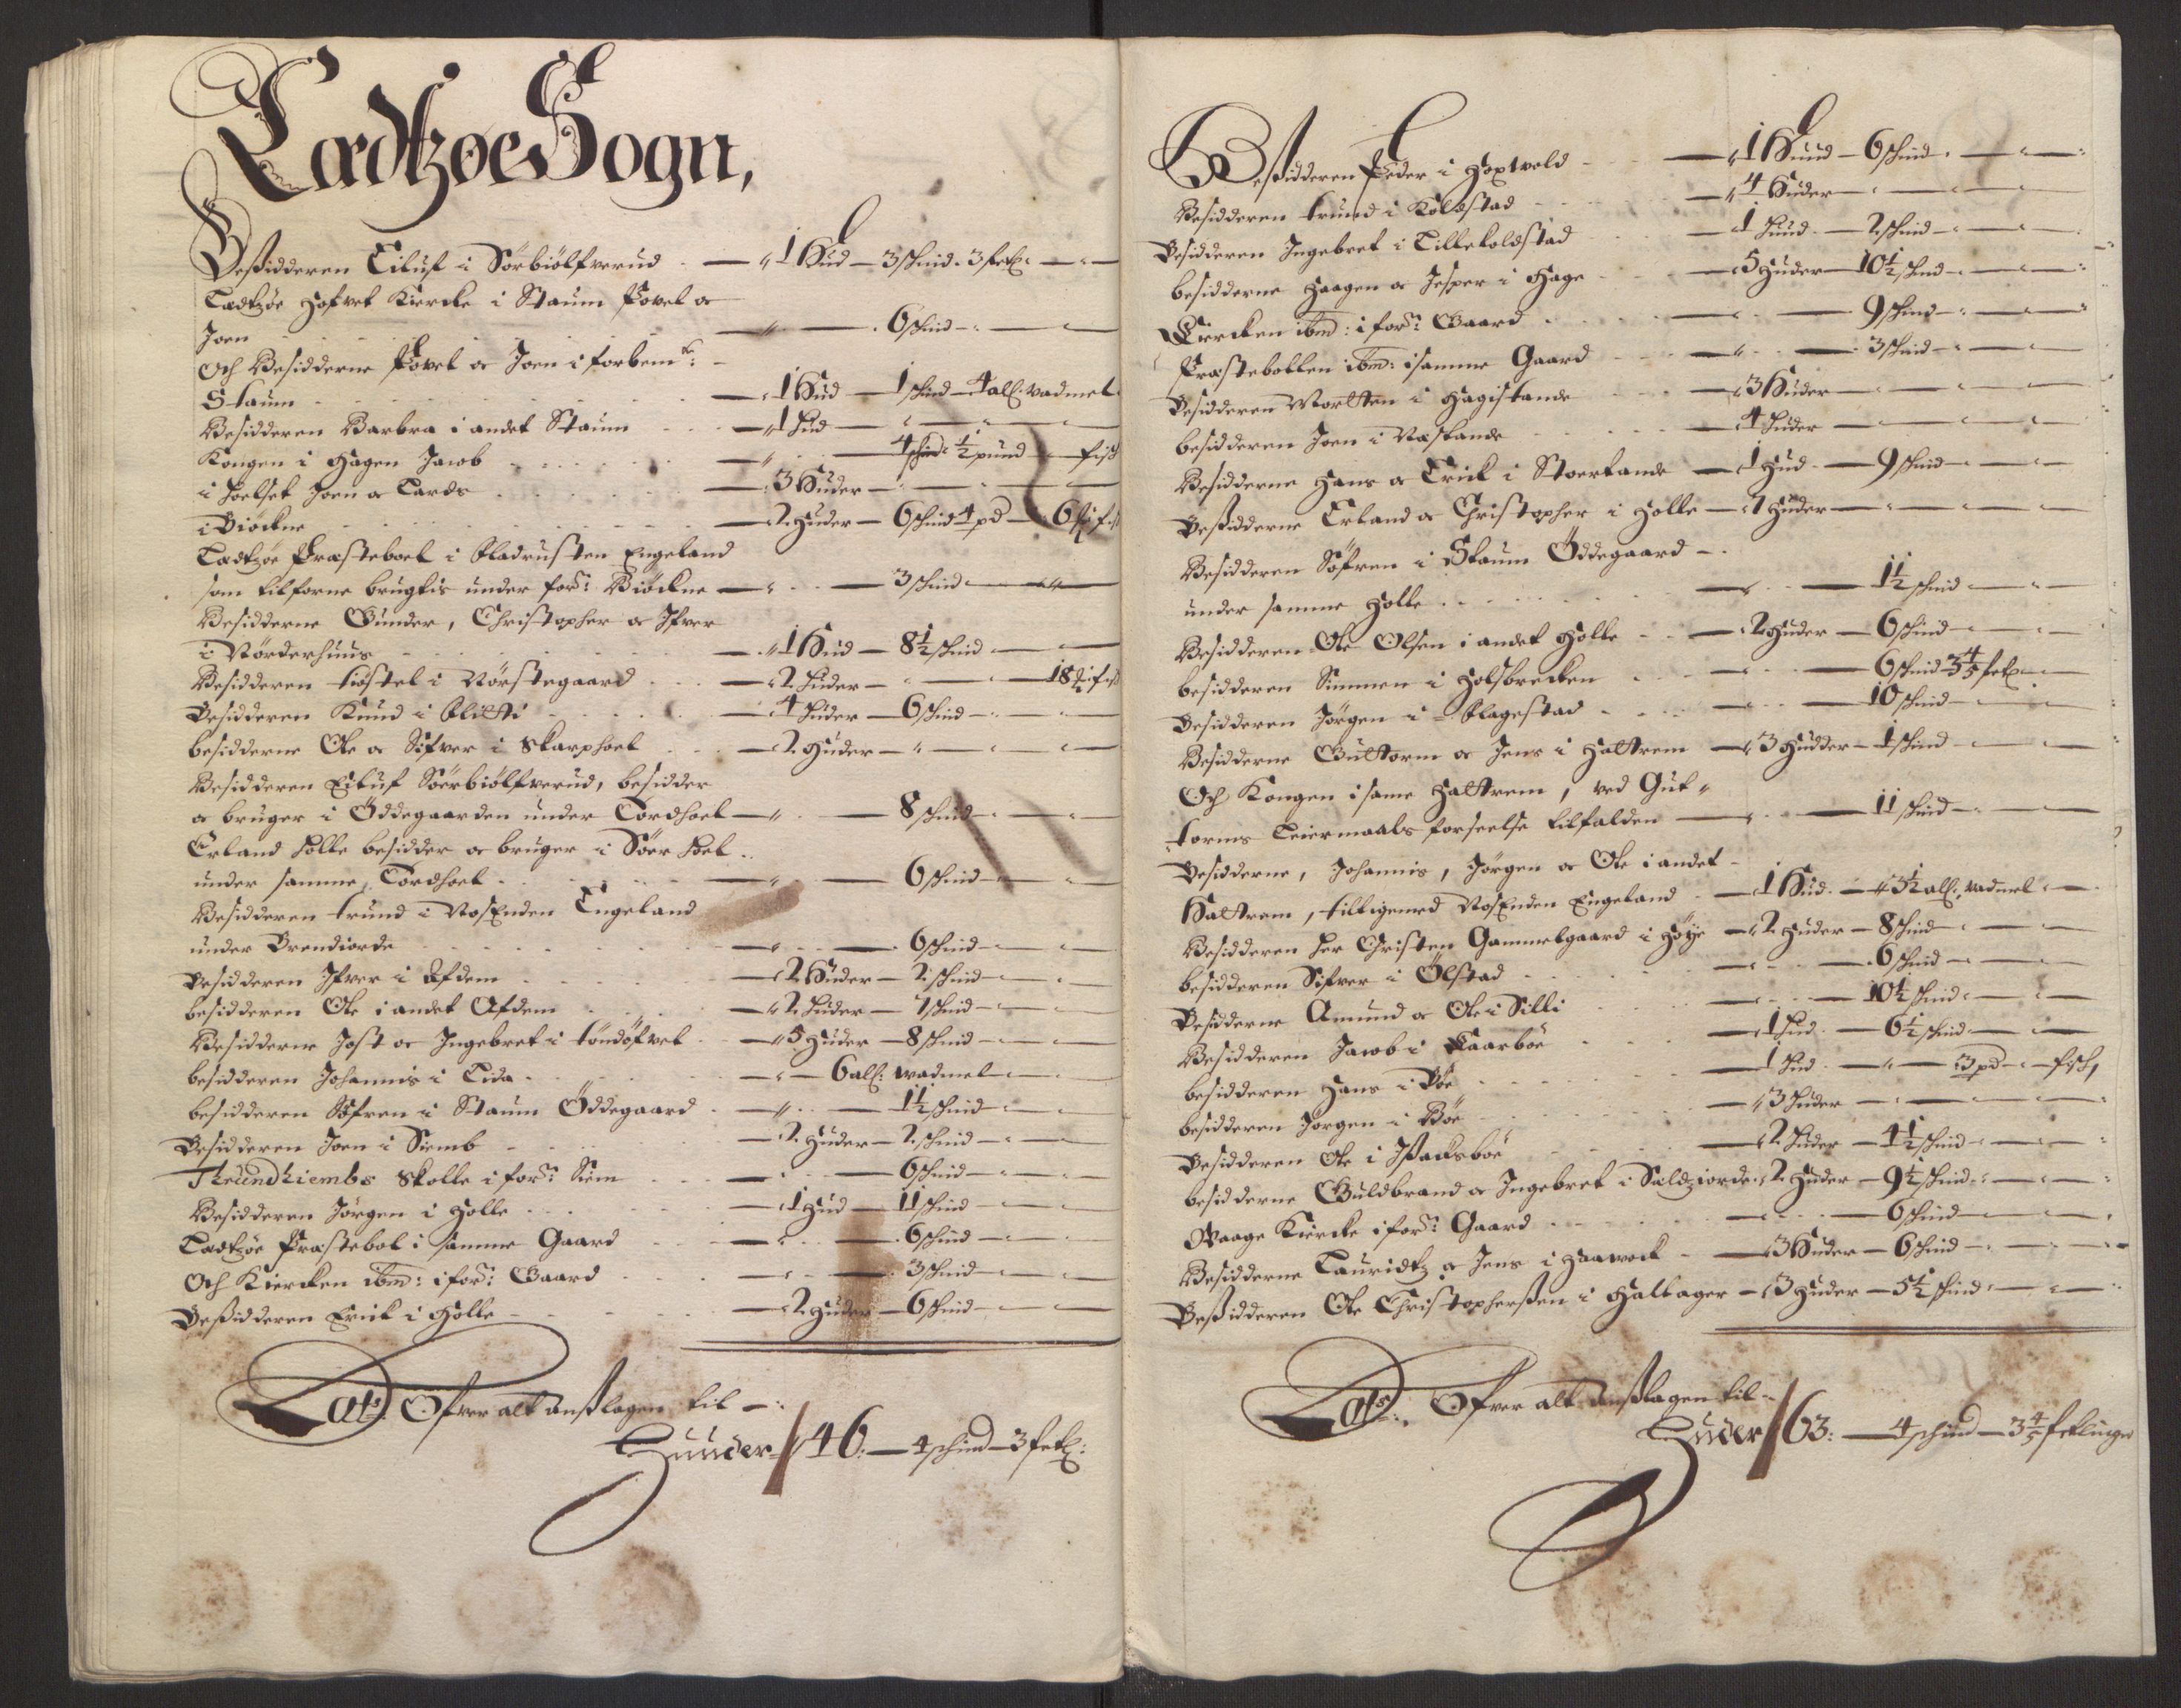 Lædtzøe Sogn,
Beßidderen Eiluf i Sörbiölfverud — 1 Hud — 3 schind. 3 fetl:
Lædtzöe Hofvet Kiercke i Staum Povel oc
Joen — 6 schind
Och Besidderne Povel oc Joen i forbemte:
Staum — 1 Hud — 1 schind — 4 all: vadmel
Besidderen Barbra i andet Staum — 1 Hud
Kongen i Hagen Jacob — 4 schind ½ pund fisch
i Hoelset Joen oc Lards — 3 Huder
i Biöckne — 2 Huder — 6 schind 4 pd — 6
Lædtzöe Præsteboel i Engeland
som tilforne brugtis under fors: Biöckne — 3 schind
Besidderne Gunder, Christopher oc Ifver
i Nörderhuus — 1 Hud — 8½ schind
Besidderen Tostel i Nörstegaard — 2 Huder — 18
Besidderen Knud i Klitti — 4 Huder — 6 schind
besidderne Ole oc Sifver i Skarphoel — 2 Huder
Besidderen Eiluf Söerbiölfverud, besidder
oc bruger i Öddegaarden under Tordhoel — 8 schind
Erland Holle besidder oc bruger i Söer Hoel
under samme Tordhoel — 6 schind
Besidderen Trund i NosEnden Engeland
under Brendiorde — 6 schind
Besidderen Ifver i Afdem — 2 Huder — 2 schind
besidderen Ole i andet Afdem — 2 Huder — 1 schind
Besidderne Jost oc Ingebret i Töndöfvel — 5 Huder — 8 schind
besidderen Johannis i Lida — 6 all: wadmel
besidderen Söfren i Staum Öddegaard — 1½ schind
Besidderen Joen i Siemb — 2 Huder — 2 schind
Thrundhiembs Skolle i fors: Siem — 6 schind
Besidderen Jörgen i Holle — 1 Hud — 11 schind
Lædtzöe Præstebol i samme Gaard — 6 schind
Och Kiercken ibm: i fors: Gaard — 3 schind
Beßidderen Erick i Holle — 2 Huder — 6 schind
Lats Ofver alt Anslagen til —:
Huuder — 46: — 4 schind — 3 fetl:
Beßidderen Peder i Hoxvold — 1 Huud — 6 schind
Besidderen Trund i Kolstad — 4 Huder
Besidderen Ingebret i Lillekolstad — 1 Huud — 2 schind
besidderne Haagen oc Jesper i Hage — 5 Huder — 10½ schind
Kiercken ibm: i fors: Gaard — 9 schind
Præstebollen ibm: i samme Gaard — 3 schind
Besidderen Mortten i Hagistande — 3 Huder
besidderen Joen i Næstande — 4 Huder
Besidderne Hans oc Erick i Storstande — 1 Hud — 9 schind
Beßidderne Erland oc Christopher i Holle — 7 Huder
Besidderen Söfren i Staum Öddegaard
under samme Holle — 1½ schind
Besidderen Ole Olsen i andet Holle — 2 Huder — 6 schind
besidderen Simmen i Holsbrecken — 6 schind 3⅘ fetl:
Besidderen Jörgen i Klagestad — 10 schind
Besidderne Guttorm oc Jens i Hattrem — 3 Hudder — 1 schind
Och Kongen i same Hattrem, ved Gut-
torms Leiermaals forseelse tilfalden — 11 schind
Besidderne, Johannis, Jörgen oc Ole i andet
Hattrem, tilligemed NosEnden Engeland — 1 Hud. — 3½ all: vadmel
Besidderen Her Christen Gammelgaard i Höye — 2 Huder — 8 schind
besidderen Sifver i Ölstad — 6 schind
Besidderne Amund oc Ole i Silli — 10½ schind
Besidderen Jacob i Kaarböe — 1 Hud. — 6½ schind
besidderen Hans i Böe — 1 Hud. — 3 pd — fisch,
besidderen Jörgen i Böe — 3 Huder
Besidderen Ole i Isacksböe — 2 Huder — 4½ schind
besidderne Guldbrand oc Ingebret i Selsiorde — 2 Huder — 9½ schind
Waage Kiercke i fors: Gaard — 6 schind
Besidderne Lauridtz oc Jens i Haawock — 3 Huder — 6 schind
Beßidderen Ole Christophersen i Hallager — 3 Huder — 5½ schind
Lats: Ofver alt Anslagen til —
Huder 63: — 4 schind — 3⅘ fetlinger